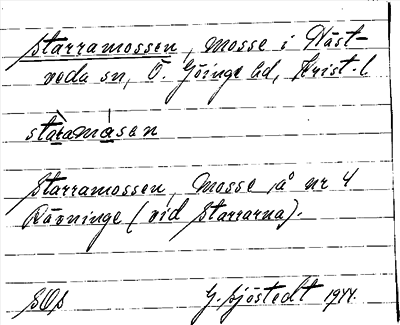 Starramossen, mosse i Näst-
veda sn, Ö. Göinge hd, Krist. l.
staramåsen
Starramossen, mosse å nr 4
Rävninge (vid Starrarna).
SOS G. Sjöstedt 1944.